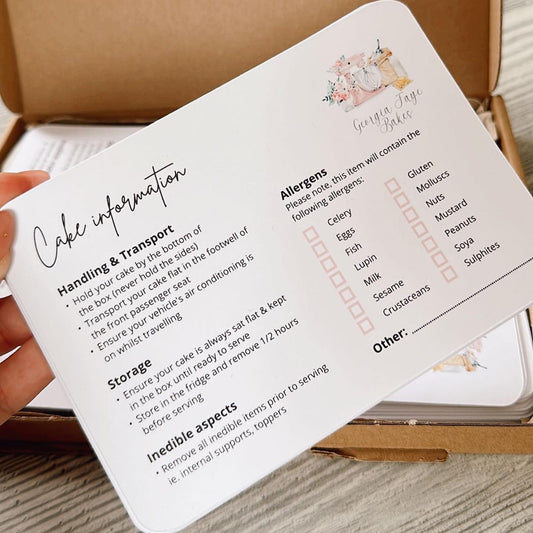 Georgia Jaye
Bakes
Cake information
Handling & Transport
• Hold your cake by the bottom of
the box (never hold the sides)
• Transport your cake flat in the footwell of
the front passenger seat
• Ensure your vehicle's air conditioning is
on whilst travelling
Storage
• Ensure your cake is always sat flat & kept
in the box until ready to serve
• Store in the fridge and remove 1/2 hours
before serving
Inedible aspects
• Remove all inedible items prior to serving
ie. internal supports, toppers
Allergens
Please note, this item will contain the
following allergens:
Celery
Eggs
Fish
Lupin
Milk
Sesame
Crustaceans
Gluten
Molluscs
Nuts
Mustard
Peanuts
Soya
Sulphites
Other: